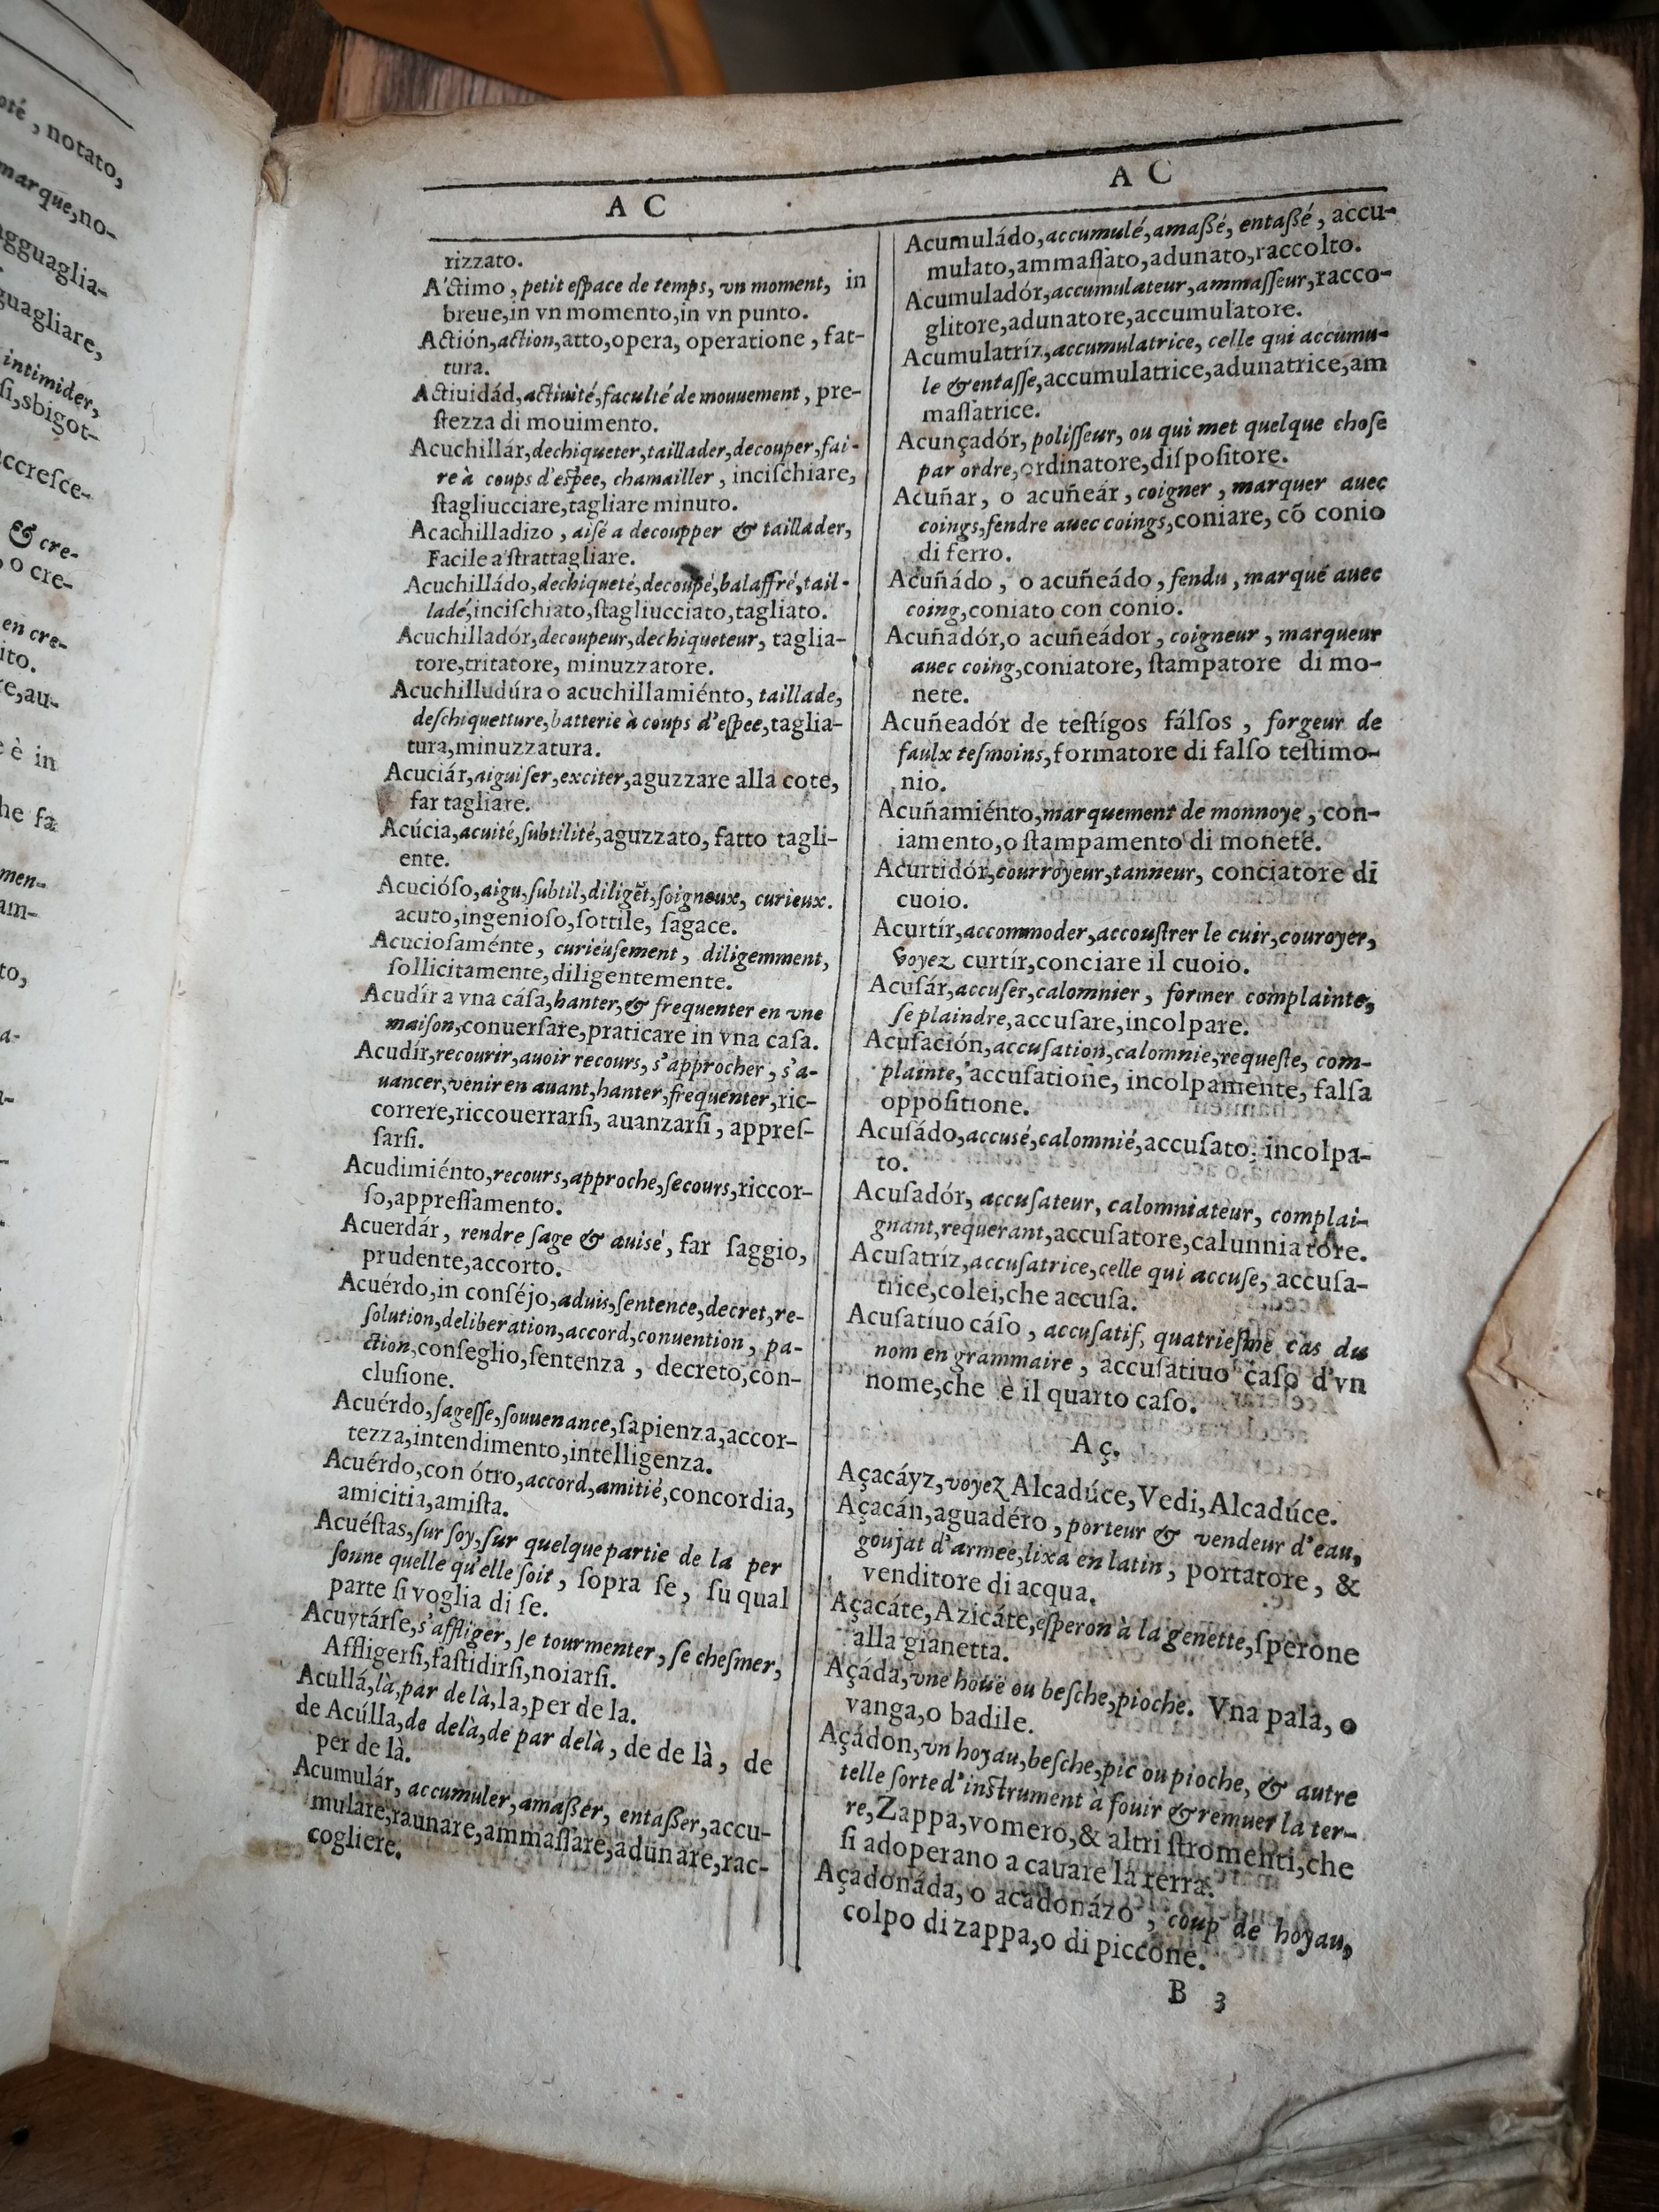 oté, notato,
marque, no-
agguaglia-
guagliare,
intimider,
ſi,sbigot-
accreſce-
& cre-
, o cre-
en cre-
ito.
re,au-
e è in
he fa
men-
am-
to,
A C
rizzato.
A'ctimo, petit eſpace de temps, vn moment, in
breue,in vn momento,in vn punto.
Actión,action,atto,opera, operatione, fat-
tura.
Actiuidád,actiuité,faculté de mouuement, pre-
ſtezza di mouimento.
Acuchillár,dechiqueter,taillader,decouper,fai-
re à coups d'eſpee, chamailler, inciſchiare,
ſtagliucciare,tagliare minuto.
Acachilladizo, aiſé a decoupper & taillader,
Facile a ſtrattagliare.
Acuchilládo,dechiqueté,decoupé,balaffré,tail-
ladé,inciſchiato,ſtagliucciato,tagliato.
Acuchilladór,decoupeur,dechiqueteur, taglia-
tore,tritatore, minuzzatore.
Acuchilludúra o acuchillamiénto, taillade,
deſchiquetture,batterie à coups d'eſpee,taglia-
tura,minuzzatura.
Acuciár,aiguiſer,exciter,aguzzare alla cote,
far tagliare.
Acúcia,acuité,ſubtilité,aguzzato, fatto tagli-
ente.
Acucióſo,aigu,ſubtil,diligẽt,ſoigneux, curieux.
acuto,ingenioſo,ſottile, ſagace.
Acucioſaménte, curieuſement, diligemment,
ſollicitamente,diligentemente.
Acudír a vna cáſa,hanter,& frequenter en vne
maiſon,conuerſare,praticare in vna caſa.
Acudír,recourir,auoir recours, s'approcher, s'a-
uancer,venir en auant,hanter,frequenter,ric-
correre,riccouerrarſi, auanzarſi, appreſ-
ſarſi.
Acudimiénto,recours,approche,ſecours,riccor-
ſo,appreſſamento.
Acuerdár, rendre ſage & auiſé, far ſaggio,
prudente,accorto.
Acuérdo,in conſéjo,aduis,ſentence,decret,re-
ſolution,deliberation,accord,conuention, pa-
ction,conſeglio,ſentenza, decreto,con-
cluſione.
Acuérdo,ſageſſe,ſouuenance,ſapienza,accor-
tezza,intendimento,intelligenza.
Acuérdo,con ótro,accord,amitié,concordia,
amicitia,amiſta.
Acuéſtas,ſur ſoy,ſur quelque partie de la per
ſonne quelle qu'elle ſoit, ſopra ſe, ſu qual
parte ſi voglia di ſe.
Acuytárſe,s'affliger, ſe tourmenter, ſe cheſmer,
Affligerſi,faſtidirſi,noiarſi.
Acullá,là,par de là,la,per de la.
de Acúlla,de delà,de par delà, de de là, de
per de là.
Acumulár, accumuler,amaßer, entaßer,accu-
mulare,raunare,ammaſſare,adunare,rac-
cogliere.
A C
Acumuládo,accumulé,amaßé, entaßé, accu-
mulato,ammaſſato,adunato,raccolto.
Acumuladór,accumulateur,ammaſſeur,racco-
glitore,adunatore,accumulatore.
Acumulatríz,accumulatrice, celle qui accumu-
le & entaſſe,accumulatrice,adunatrice,am
maſſatrice.
Acunçadór, poliſſeur, ou qui met quelque choſe
par ordre,ordinatore,diſpoſitore.
Acuñar, o acuñeár, coigner, marquer auec
coings,fendre auec coings,coniare, cõ conio
di ferro.
Acuñádo, o acuñeádo, fendu, marqué auec
coing,coniato con conio.
Acuñadór,o acuñeádor, coigneur, marqueur
auec coing,coniatore, ſtampatore di mo-
nete.
Acuñeadór de teſtígos fálſos, forgeur de
faulx teſmoins,formatore di falſo teſtimo-
nio.
Acuñamiénto,marquement de monnoye, con-
iamento,o ſtampamento di monete.
Acurtidór,courroyeur,tanneur, conciatore di
cuoio.
Acurtír,accommoder,accouſtrer le cuir,couroyer,
voyez curtír,conciare il cuoio.
Acuſár,accuſer,calomnier, former complainte,
ſe plaindre,accuſare,incolpare.
Acuſación,accuſation,calomnie,requeſte, com-
plainte, accuſatione, incolpamente, falſa
oppoſitione.
Acuſádo,accusé,calomnié,accuſato, incolpa-
to.
Acuſadór, accuſateur, calomniateur, complai-
gnant,requerant,accuſatore,calunniatore.
Acuſatríz,accuſatrice,celle qui accuſe, accuſa-
trice,colei,che accuſa.
Acuſatíuo cáſo, accuſatif, quatrieſme cas du
nom en grammaire, accuſatiuo caſo d'vn
nome,che è il quarto caſo.
A ç.
Açacáyz,voyez Alcadúce,Vedi,Alcadúce.
Açacán,aguadéro, porteur & vendeur d'eau,
goujat d'armee,lixa en latin, portatore, &
venditore di acqua.
Açacáte,Azicáte,eſperon à la genette,ſperone
alla gianetta.
Açáda,vne houë ou beſche,pioche. Vna pala, o
vanga,o badile.
Açádon,vn hoyau,beſche,pic ou pioche, & autre
telle ſorte d'inſtrument à fouir & remuer la ter-
re,Zappa,vomero,& altri ſtromenti,che
ſi adoperano a cauare la terra.
Açadonáda, o acadonázo, coup de hoyau,
colpo di zappa,o di piccone.
B 3